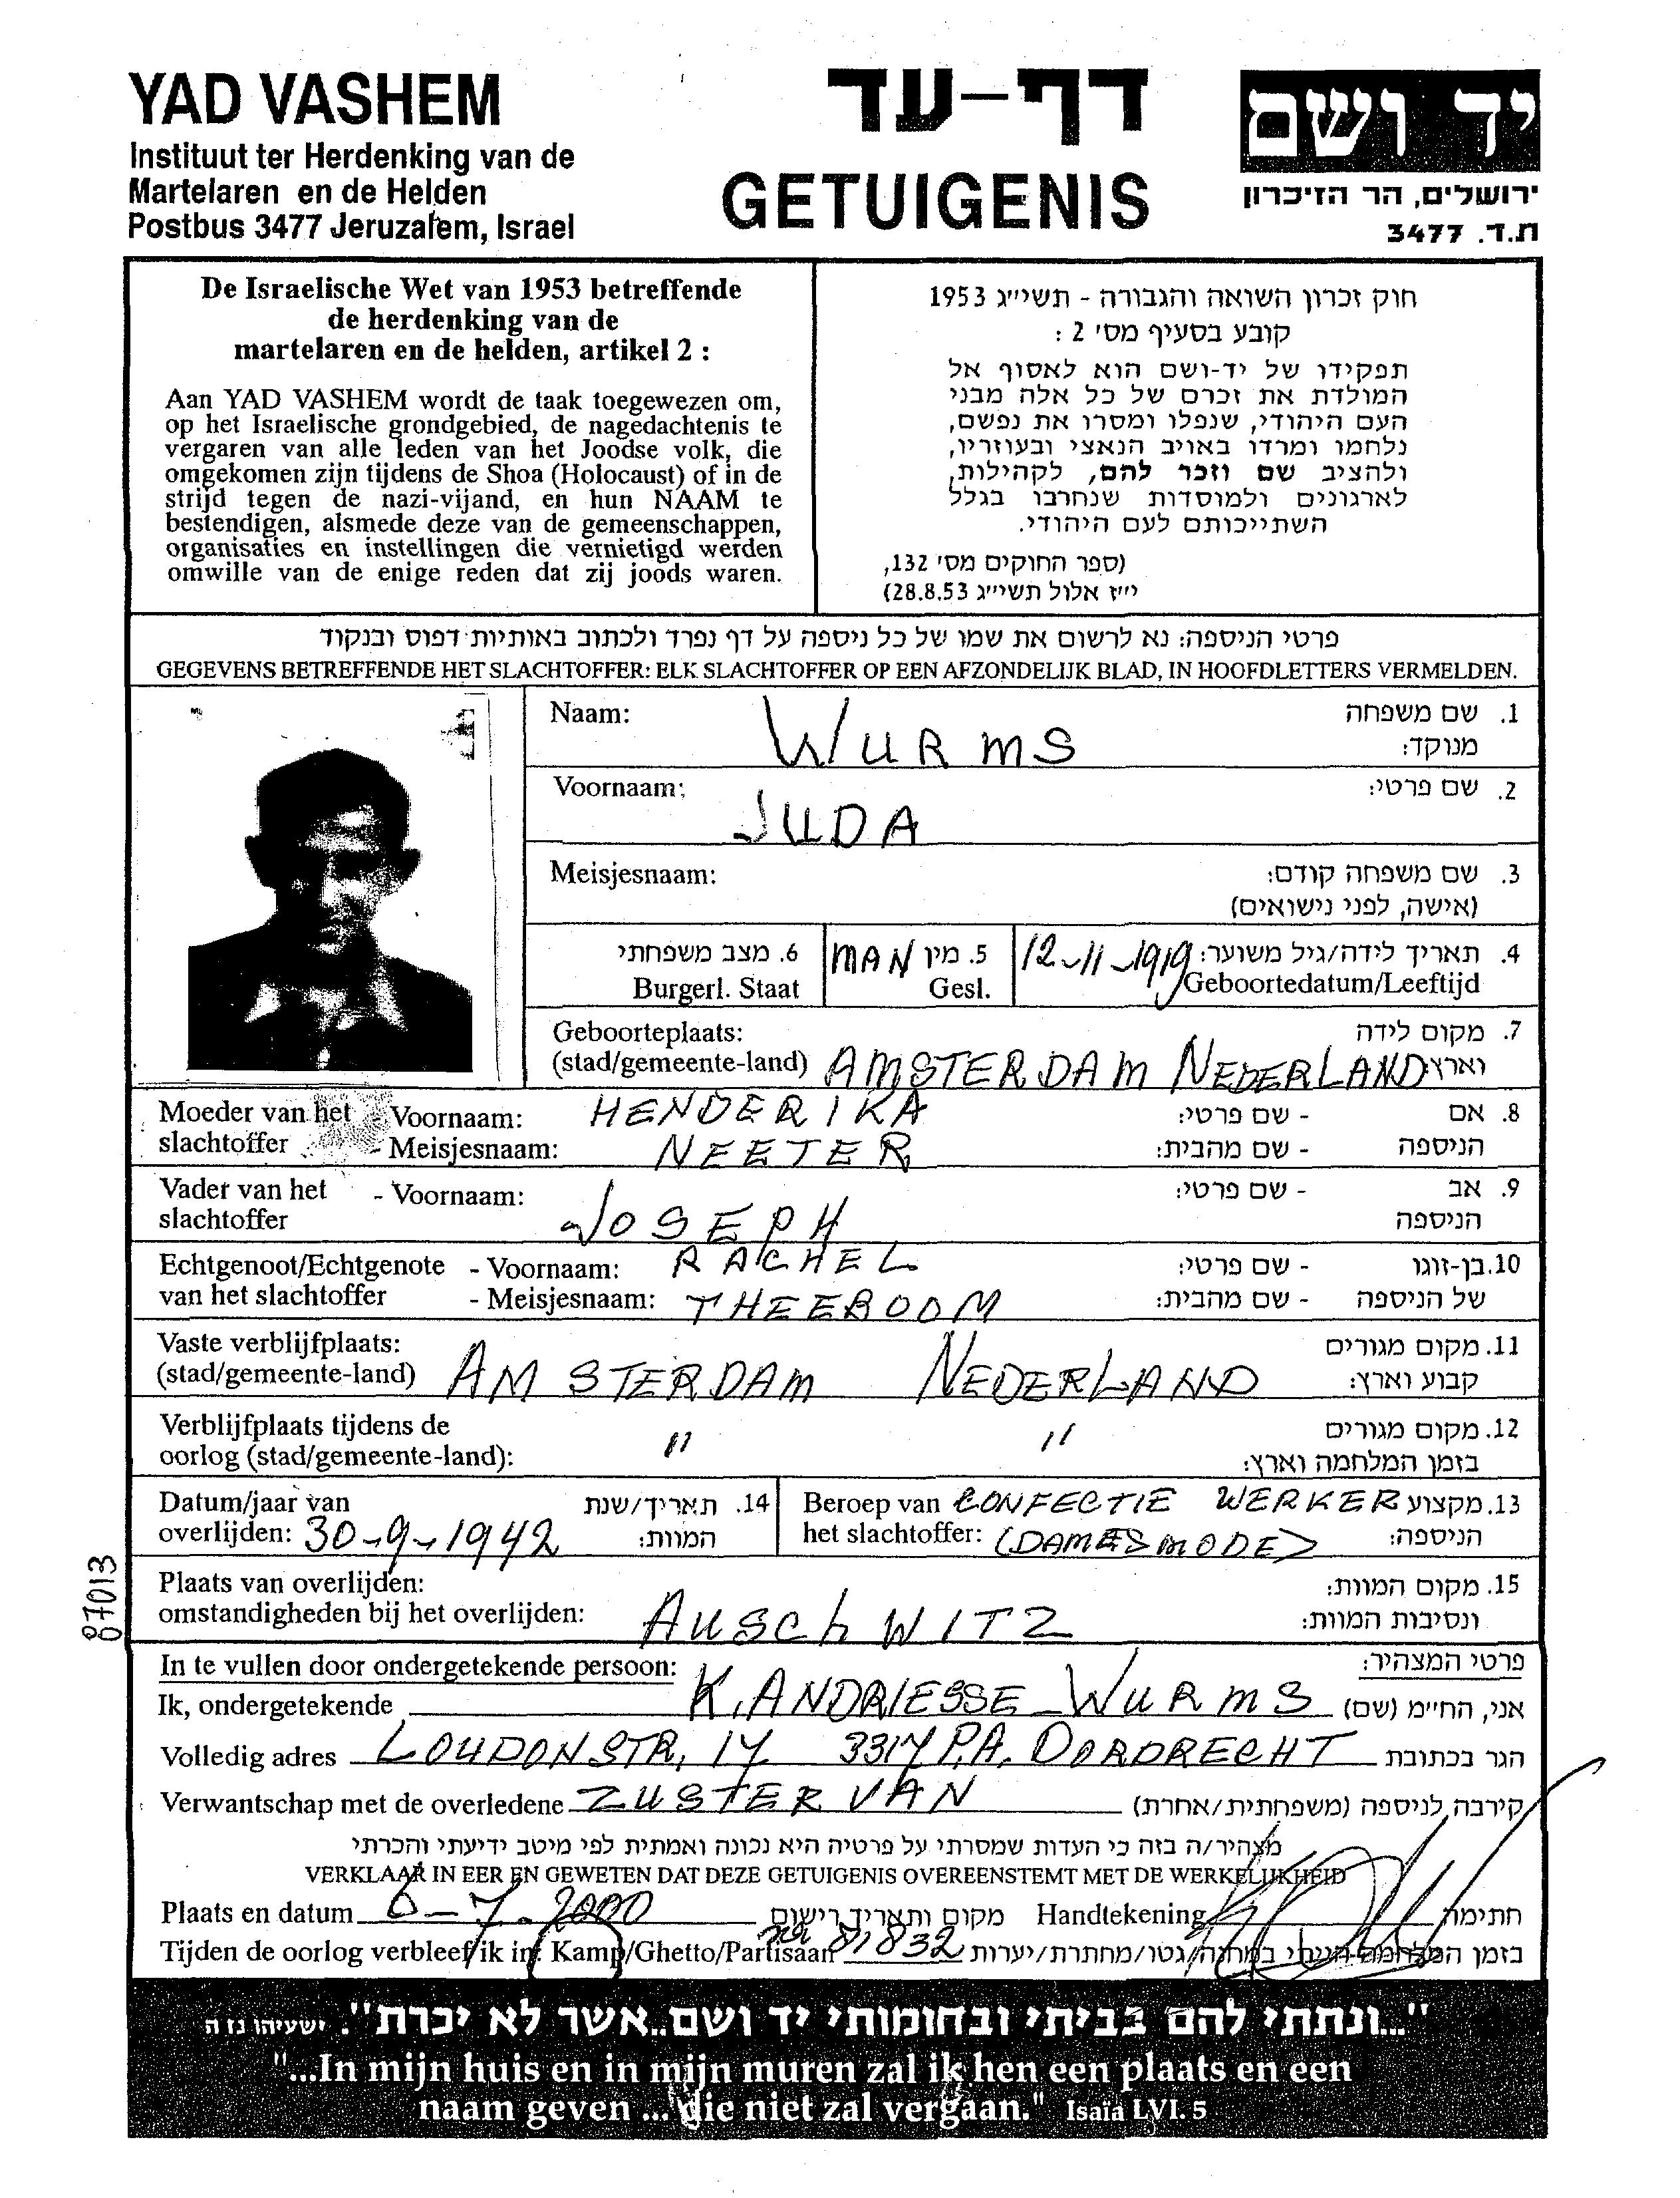 YAD VASHEM
Instituut ter Herdenking van de
Martelaren en de Helden
Postbus 3477 Jeruzalem, Israel
דף-עד
GETUIGENIS
יד ושם
ירושלים, הר הזיכרון
ת.ד. 3477
De Israelische Wet van 1953 betreffende
de herdenking van de
martelaren en de helden, artikel 2 :
Aan YAD VASHEM wordt de taak toegewezen om,
op het Israelische grondgebied, de nagedachtenis te
vergaren van alle leden van het Joodse volk, die
omgekomen zijn tijdens de Shoa (Holocaust) of in de
strijd tegen de nazi-vijand, en hun NAAM te
bestendigen, alsmede deze van de gemeenschappen,
organisaties en instellingen die vernietigd werden
omwille van de enige reden dat zij joods waren.
חוק זכרון השואה והגבורה - תשי״ג 1953
קובע בסעיף מס׳ 2 :
תפקידו של יד-ושם הוא לאסוף אל
המולדת את זכרם של כל אלה מבני
העם היהודי, שנפלו ומסרו את נפשם,
נלחמו ומרדו באויב הנאצי ובעוזריו,
ולהציב שם וזכר להם, לקהילות,
לארגונים ולמוסדות שנחרבו בגלל
השתייכותם לעם היהודי.
(ספר החוקים מס׳ 132,
י״ז אלול תשי״ג 28.8.53)
פרטי הניספה: נא לרשום את שמו של כל ניספה על דף נפרד ולכתוב באותיות דפוס ובנקוד
GEGEVENS BETREFFENDE HET SLACHTOFFER: ELK SLACHTOFFER OP EEN AFZONDELIJK BLAD, IN HOOFDLETTERS VERMELDEN.
Naam: WURMS 1. שם משפחה
מנוקד:
Voornaam: JUDA 2. שם פרטי:
Meisjesnaam: 3. שם משפחה קודם:
(אישה, לפני נישואים)
6. מצב משפחתי 5. מין MAN 12-11-1919 4. תאריך לידה/גיל משוער:
Burgerl. Staat Gesl. Geboortedatum/Leeftijd
Geboorteplaats: 7. מקום לידה
(stad/gemeente-land) AMSTERDAM NEDERLAND וארץ:
Moeder van het - Voornaam: HENDERIKA - שם פרטי: 8. אם
slachtoffer - Meisjesnaam: NEETER - שם מהבית: הניספה
Vader van het - Voornaam: - שם פרטי: 9. אב
slachtoffer JOSEPH הניספה
Echtgenoot/Echtgenote - Voornaam: RACHEL - שם פרטי: 10. בן-זוגו
van het slachtoffer - Meisjesnaam: THEEBOOM - שם מהבית: של הניספה
Vaste verblijfplaats: 11. מקום מגורים
(stad/gemeente-land) AMSTERDAM NEDERLAND קבוע וארץ:
Verblijfplaats tijdens de 12. מקום מגורים
oorlog (stad/gemeente-land): " " בזמן המלחמה וארץ:
Datum/jaar van 14. תאריך/שנת
overlijden: 30-9-1942 המוות:
Beroep van CONFECTIE WERKER 13. מקצוע
het slachtoffer: (DAMESMODE) הניספה:
Plaats van overlijden: 15. מקום המוות:
omstandigheden bij het overlijden: AUSCHWITZ ונסיבות המוות:
87013
In te vullen door ondergetekende persoon: פרטי המצהיר:
Ik, ondergetekende K. ANDRIESSE - WURMS אני, החי״מ (שם)
Volledig adres LOUDONSTR. 14 3314 P.A. DORDRECHT הגר בכתובת
Verwantschap met de overledene ZUSTER VAN קירבה לניספה (משפחתית/אחרת)
מצהיר/ה בזה כי העדות שמסרתי על פרטיה היא נכונה ואמתית לפי מיטב ידיעתי והכרתי
VERKLAAR IN EER EN GEWETEN DAT DEZE GETUIGENIS OVEREENSTEMT MET DE WERKELIJKHEID
Plaats en datum 6-7-2000 מקום ותאריך רישום Handtekening חתימה
Tijden de oorlog verbleef ik in: Kamp/Ghetto/Partisaan 81832 בזמן המלחמה הייתי במחנה/גטו/מחתרת/יערות
"...ונתתי להם בביתי ובחומותי יד ושם...אשר לא יכרת". ישעיהו נו ה
"...In mijn huis en in mijn muren zal ik hen een plaats en een
naam geven ... die niet zal vergaan." Isaïa LVI. 5